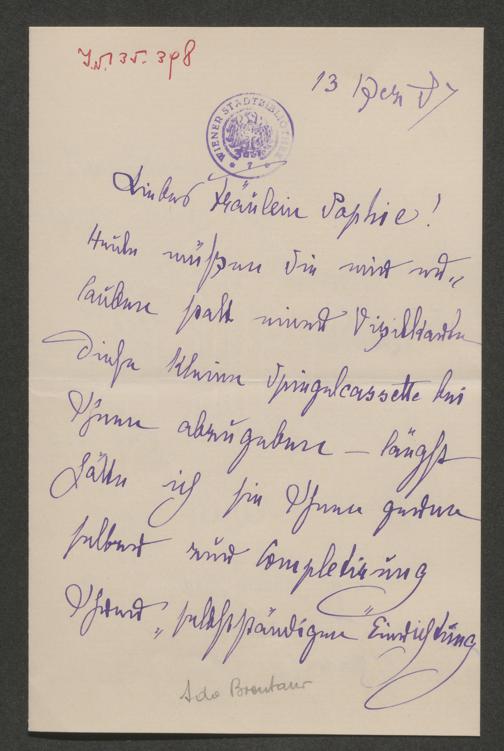 I.N. 135.398
13 Dez 87
WIENER STADTBIBLIOTHEK
Liebes Fräulein Sophie!
Heute müßen Sie mir er„
lauben statt einer Visitkarte
diese kleine Spiegelcassette bei
Ihnen abzugeben – längst
hätte ich sie Ihnen gerne
selber zur Completirung
Ihrer „selbstständigen" Einrichtung
Ida Brentano